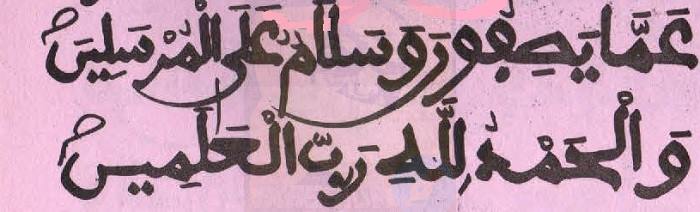 عَمَّا يَصِفُونَ وَسَلَامٌ عَلَى الْمُرْسَلِينَ
وَالْحَمْدُ لِلَّهِ رَبِّ الْعَلَمِينَ